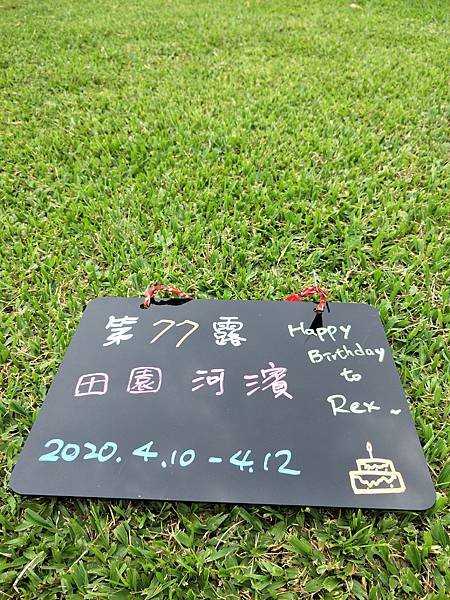 第77露
田園 河濱
2020.4.10-4.12
Happy
Birthday
to
Rex~